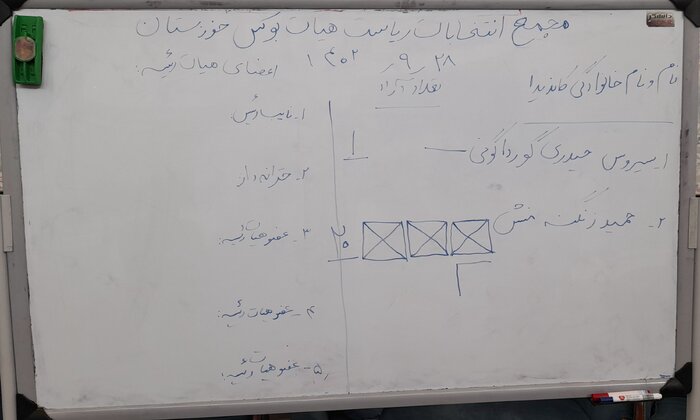 مجمع انتخابات ریاست هیات بوکس خوزستان
۱۴۰۲ ، ۹ ، ۲۸
نام و نام خانوادگی کاندیدا
تعداد آراء
۱- سیروس حیدری گورداگونی — ۱
۲- حمید زنگنه منش ۲۰
اعضای هیات رئیسه:
۱- نایب رئیس
۲- خزانه دار
۳- عضو هیات رئیسه:
۴- عضو هیات رئیسه:
۵- عضو هیات رئیسه: